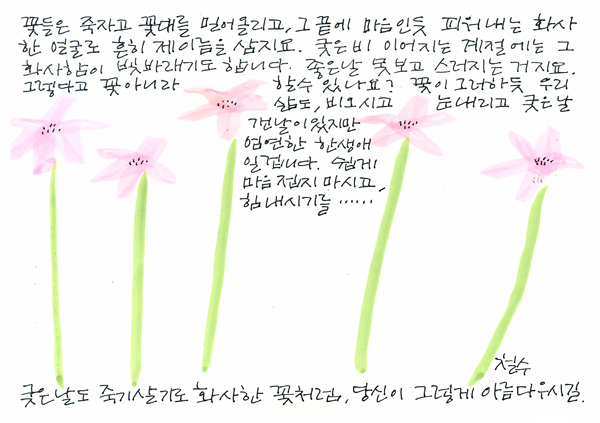 꽃들은 죽자고 꽃대를 밀어올리고, 그 끝에 마음인듯 피워내는 화사
한 얼굴로 흔히 제이름을 삼지요. 궂은비 이어지는 계절에는 그
화사함이 빛바래기도합니다. 좋은날 못보고 스러지는 거지요.
그렇다고 꽃아니라 할수 있나요? 꽃이 그러하듯 우리
삶도, 비오시고 눈내리고 궂은날
갠날이 있지만
엄연한 한생애
일겁니다. 쉽게
마음 접지 마시고,
힘내시기를 ......
철수
궂은날도 죽기살기로 화사한 꽃처럼, 당신이 그렇게 아름다우시길.